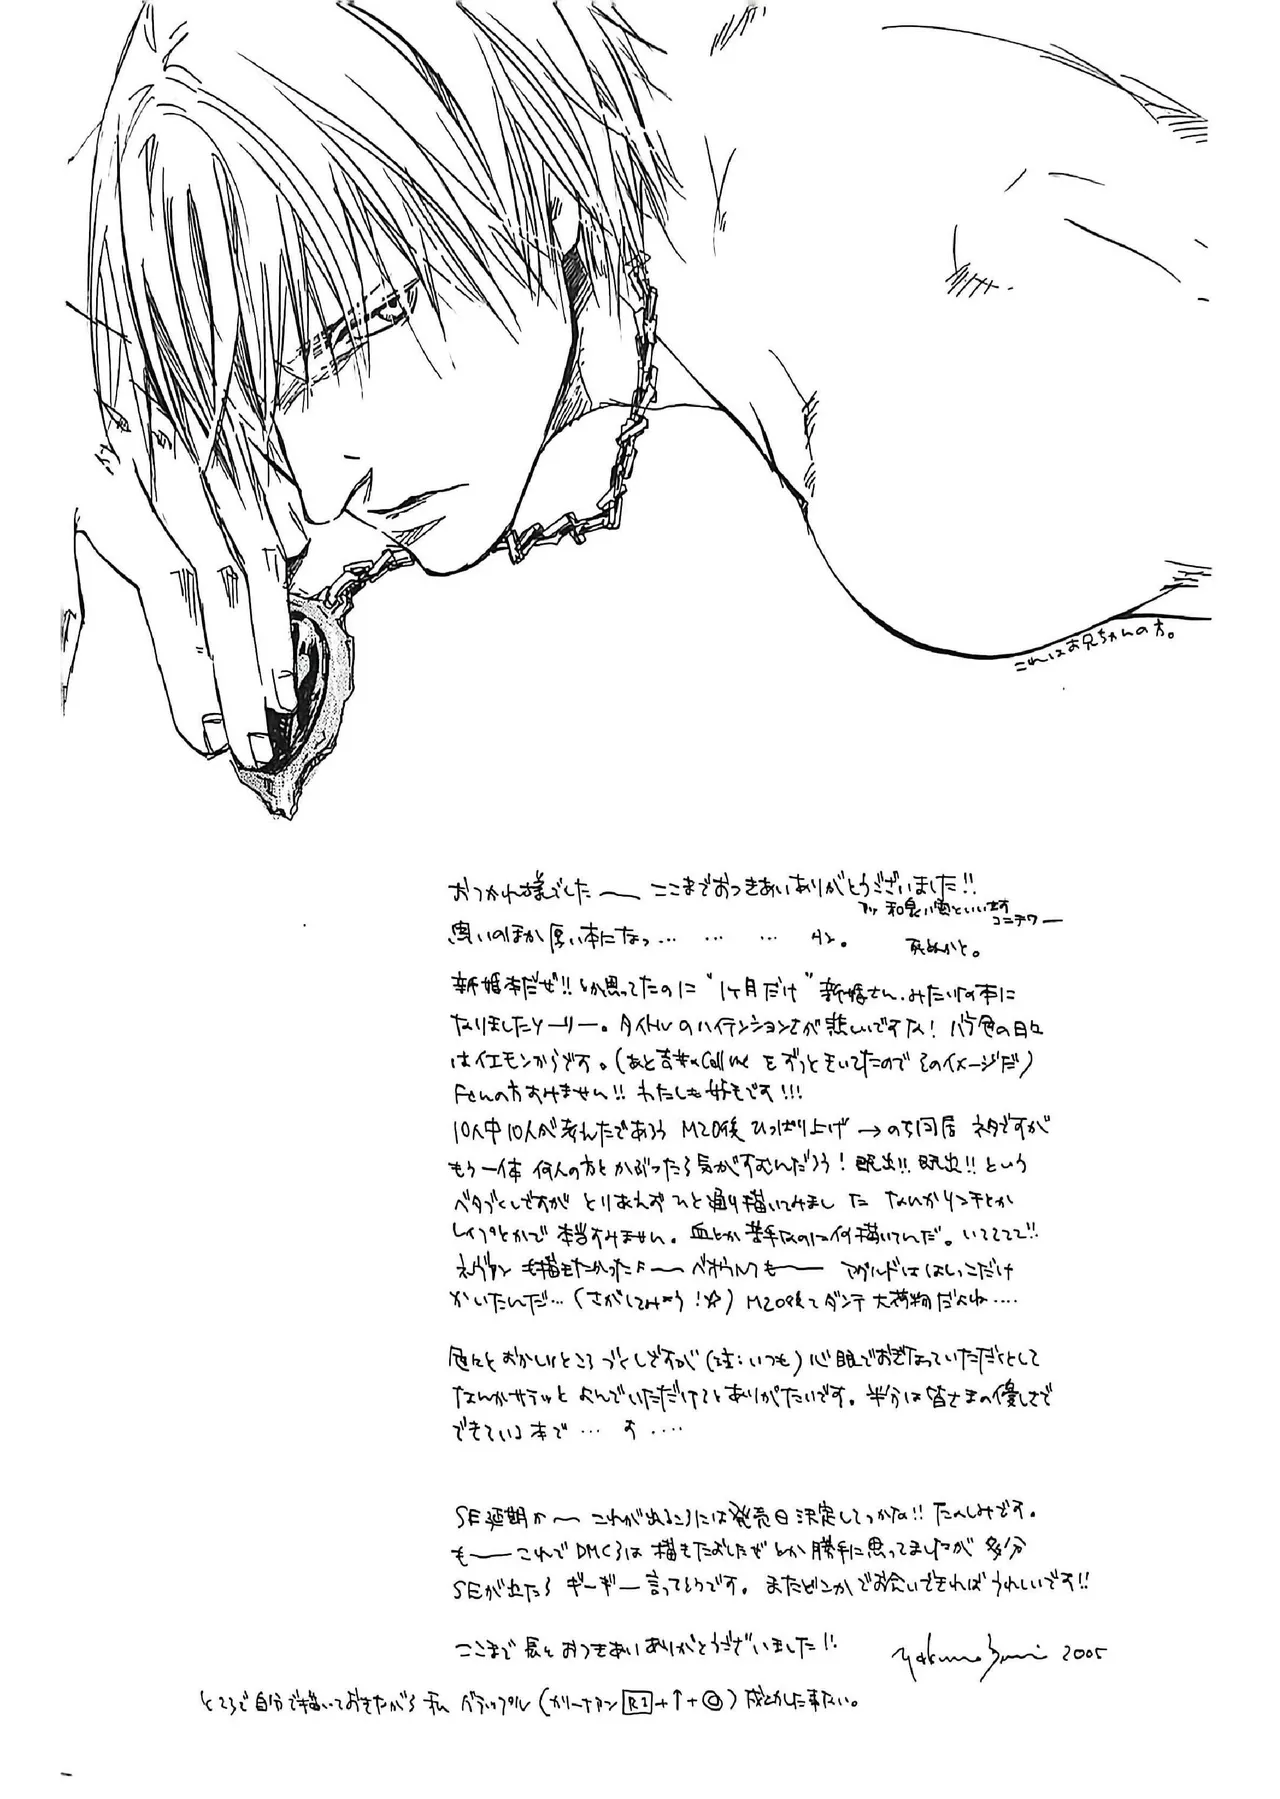 これはお兄ちゃんの方。
おつかれ様でした―― ここまでおつきあいありがとうございました!!
アッ 和泉 といいます
コニチワー
思いのほか厚い本になっ… … … タヒ。
死ぬかと。
新婚本だぜ!!とか思ってたのに "1ヶ月だけ" 新婚さんみたいな本に
なりましたソーリー。タイトルのハイテンションさが悲しいですな! バラ色の日々
はイエモンからです。(あと Call me をずっときいてたので そのイメージだ)
Fenの方すみません!! わたしも好きです!!!
10人中10人が考えたであろう M20後 ひっぱり上げ → のち同居 ネタですが
もう一体 何人の方と かぶったら気がすむんだろう! 既出!! 既出!! という
ベタづくしですが とりあえず ひと通り描いてみました なんかリンチとか
レイプとかで 本当すみません。血とか苦手なのに何描いてんだ。いてててて!!
ネヴァン も描きたかったよ―― ベオウルフも―― アグルドは はしっこだけ
かいたんだ…(さがしてみよう!☆) M20後ってダンテ 大荷物だよね‥‥
色々とおかしいところ づくしですが (注:いつも) 心眼でおぎなっていただくとして
なんかサラッと よんでいただけるとありがたいです。半分は皆さまの優しさで
できている本で… す ‥‥
SE延期か〜 これが出るころには発売日決定してるかな!! たのしみです。
も――これで DMC3は 描きたおしたぜ とか勝手に思ってましたが 多分
SEが出たら ギーギー言ってそうです。またどこかでお会いできればうれしいです!!
ここまで 長々 おつきあいありがとうございました!!
2005
ところで自分で描いておきながら 私 バラップル (カリーナアン R1+↑+◎) 成功した事ない。